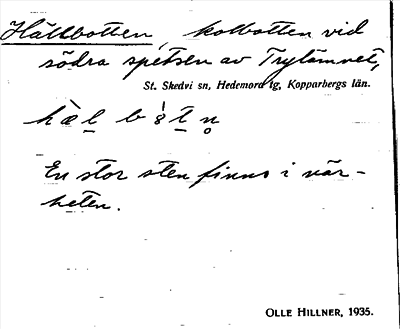 Hällbotten, kolbotten vid
södra spetsen av Trylämnet,
St. Skedvi sn, Hedemora tg, Kopparbergs län.
En stor sten finns i när-
heten.
OLLE HILLNER, 1935.